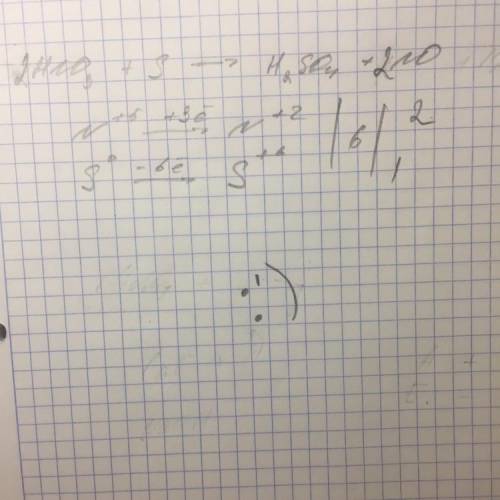 2HNO₃ + S → H₂SO₄ + 2NO
N⁺⁵ +3ē→ N⁺² | 6 | 2
S⁰ -6ē→ S⁺⁶ | | 1
:')